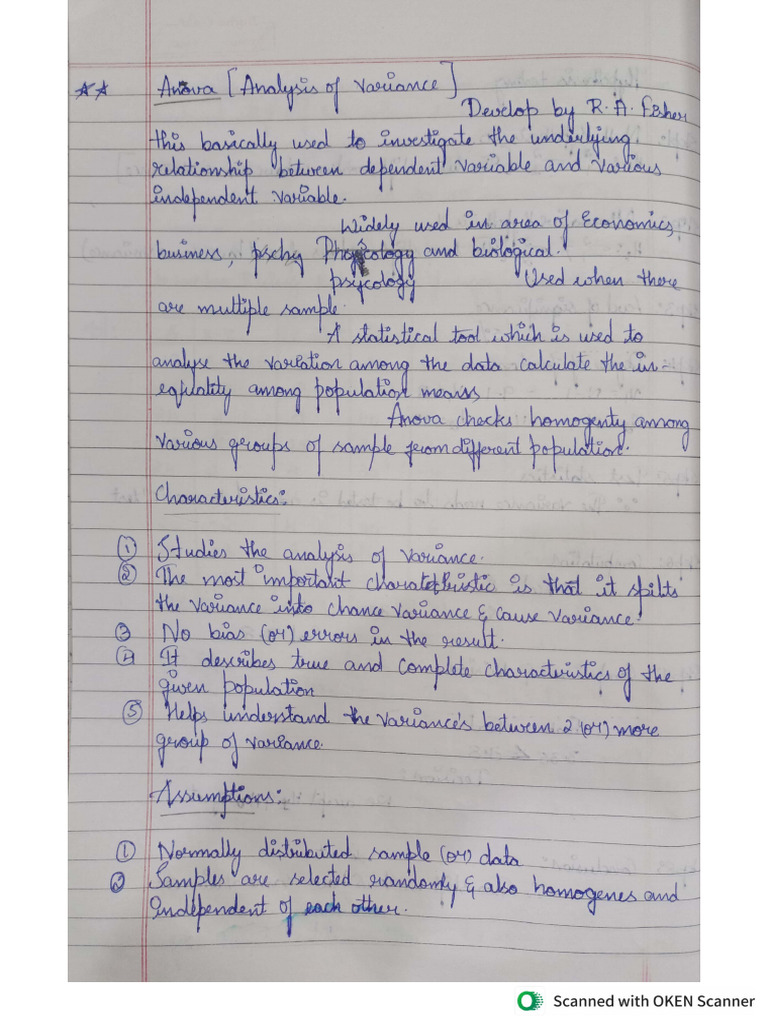 ☆☆ Anova [Analysis of Variance]
Develop by R. A. Fisher
this basically used to investigate the underlying
relationship between dependent variable and various
independent variable.
Widely used in area of Economics,
business, and biological.
psycology Used when there
are multiple sample.
A statistical tool which is used to
analyse the variation among the data calculate the in-
equality among population means,
Anova checks homogenty among
various groups of sample from different population.
Characteristics:
① Studies the analysis of variance.
② The most important charateristic is that it spilts
the variance into chance variance & cause variance.
③ No bias (or) errors in the result.
④ It describes true and complete characteristics of the
given population
⑤ Helps understand the variance's between 2 (or) more
group of variance.
Assumptions:
① Normally distributed sample (or) data
② Samples are selected randomly & also homogenes and
independent of each other.
Scanned with OKEN Scanner